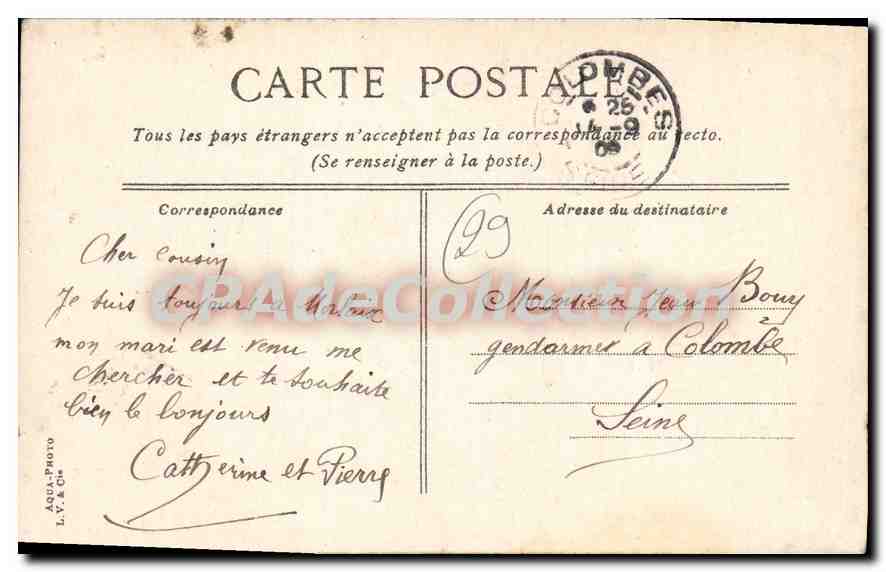 CARTE POSTALE
COLOMBES
25
4-9
09
Tous les pays étrangers n'acceptent pas la correspondance au recto.
(Se renseigner à la poste.)
Correspondance
Adresse du destinataire
29
Cher cousin
Je suis toujours a Morlaix
mon mari est venu me
chercher et te souhaite
bien le bonjours
Catherine et Pierre
Monsieur Jean Bouy
gendarmer a Colombe
Seine
CPAdeCollection
AQUA-PHOTO
L. V. & Cie